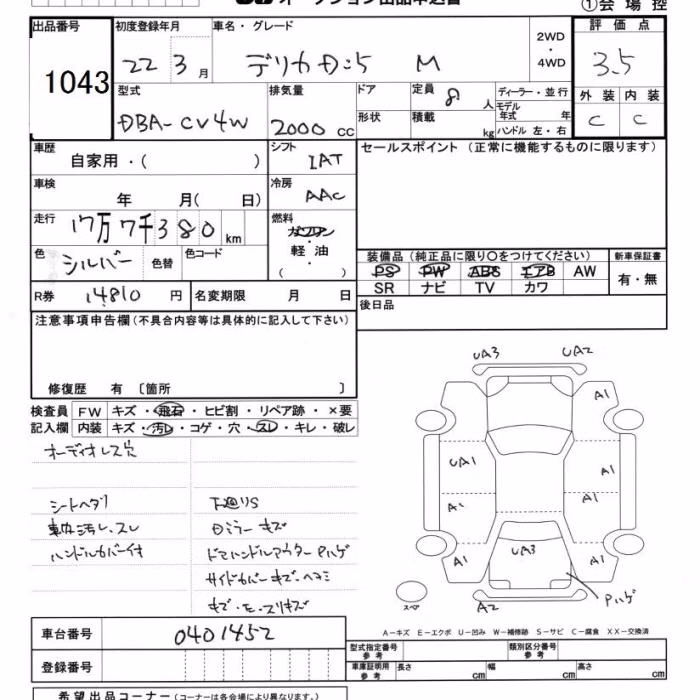 ①会場控
出品番号
1043
初度登録年月
22 3月
車名・グレード
デリカD:5 M
2WD
・
4WD
評価点
3.5
外装 内装
C C
型式
DBA-CV4W
排気量
2000 cc
ドア
形状
定員 8 人
積載 kg
ディーラー・並行
モデル年式 年
ハンドル 左・右
車歴
自家用・( )
シフト
IAT
セールスポイント (正常に機能するものに限ります)
車検
年 月( 日)
冷房
AAC
走行
17万7千380km
燃料
ガソリン
・
軽油
( )
色
シルバー
色替
色コード
装備品(純正品に限り○をつけてください)
PS PW ABS エアB AW
SR ナビ TV カワ
新車保証書
有・無
R券 14810円
名変期限 月 日
後日品
注意事項申告欄(不具合内容等は具体的に記入して下さい)
修復歴 有 〔箇所 〕
検査員 FW キズ・飛石・ヒビ割・リペア跡・×要
記入欄 内装 キズ・汚レ・コゲ・穴・スレ・キレ・破レ
オーディオレス穴
シートヘタリ
車内汚レ、スレ
ハンドルカバー付
下廻りS
Dミラーキズ
ドアハンドルアウターPハゲ
サイドカバーキズ・ヘコミ
UA3 UA2
A1
UA1 A1
A1 A1
UA3
A1 A1
A2
Pハゲ
スペア
A-キズ E-エクボ U-凹み W-補修跡 S-サビ C-腐食 XX-交換済
車台番号
0401452
登録番号
型式指定番号
参考
類別区分番号
参考
車庫証明用
参考
長さ cm 幅 cm 高さ cm
希望出品コーナー(コーナーは各会場により異なります。)